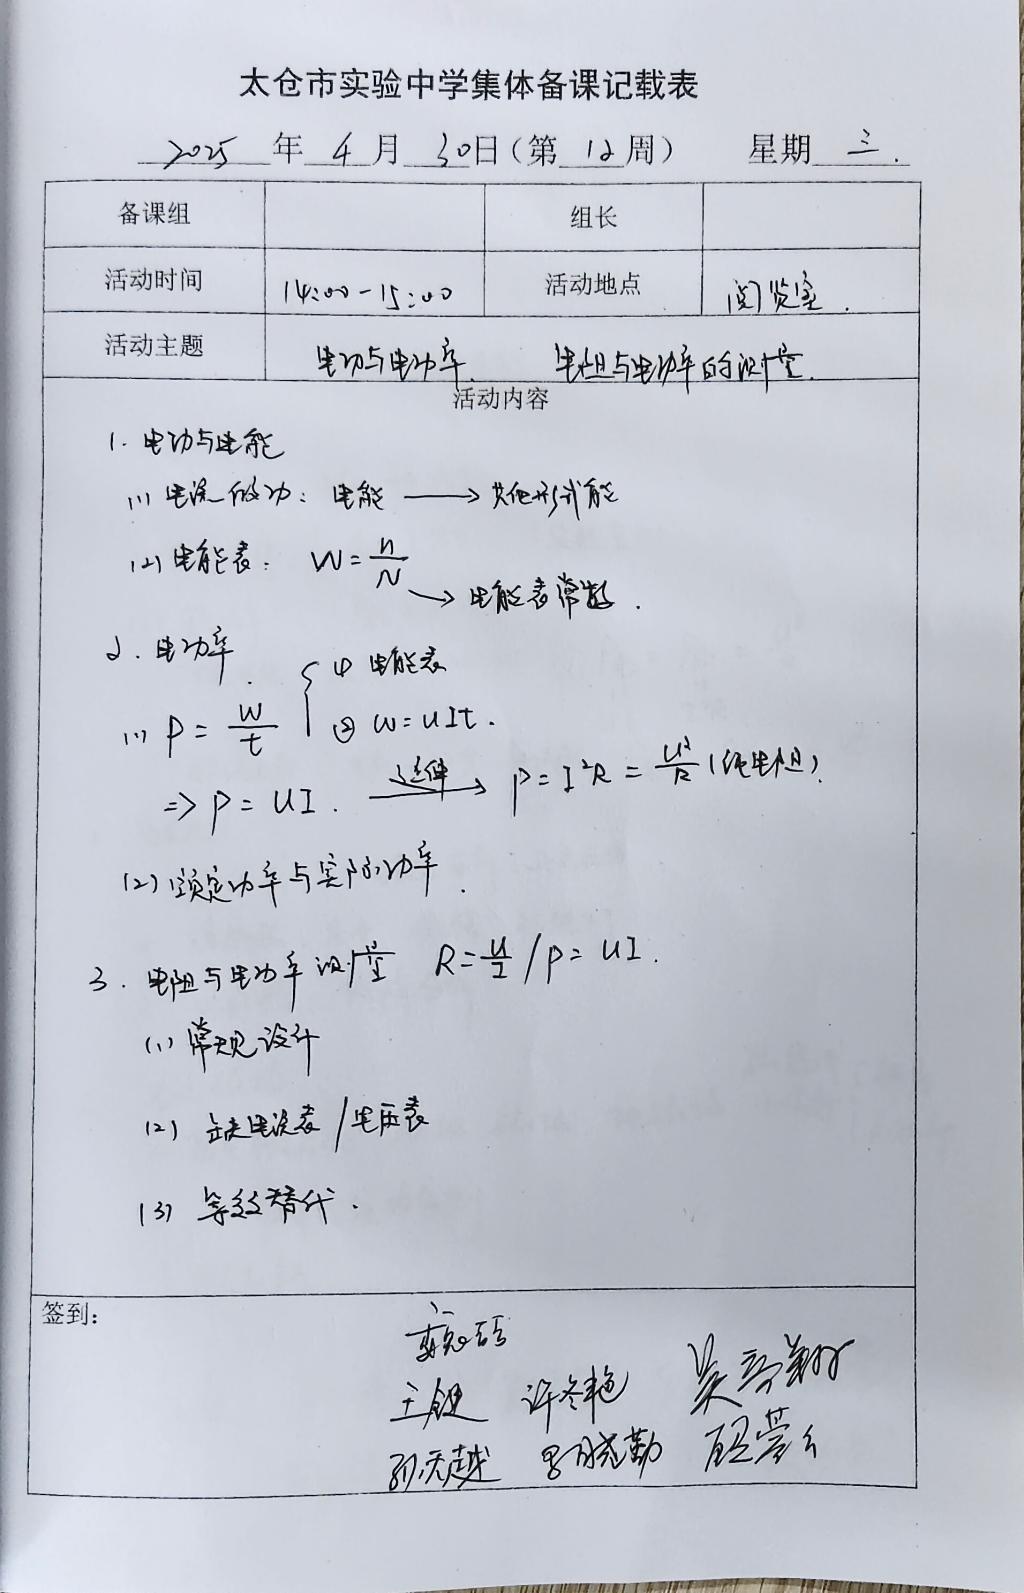 太仓市实验中学集体备课记载表
2025 年 4 月 30日(第 12 周) 星期 三.
备课组 组长
活动时间 14:00-15:00 活动地点 阅览室.
活动主题 电功与电功率. 电阻与电功率的测量.
活动内容
1. 电功与电能
(1) 电流做功: 电能 → 其他形式能
(2) 电能表: W=n/N
→ 电能表常数.
2. 电功率.
① 电能表
(1) P=W/t ② W=UIt.
⇒ P=UI. 延伸→ P=I²R=U²/R (纯电阻).
(2) 额定功率与实际功率.
3. 电阻与电功率测量 R=U/I / P=UI.
(1) 常规设计
(2) 缺电流表/电压表
(3) 等效替代.
签到:
许冬艳